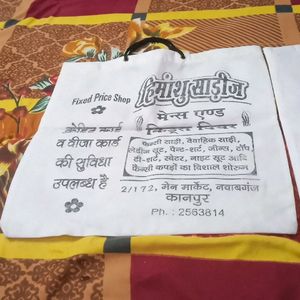 Fixed Price Shop
हिमांशु साड़ीज
मेन्स एण्ड
किड्स वियर
क्रेडिट कार्ड
व वीजा कार्ड
की सुविधा
उपलब्ध है
फैन्सी साड़ी, वैवाहिक साड़ी,
लेडीज सूट, पैन्ट-शर्ट, जीन्स, टॉप,
टी-शर्ट, स्वेटर, नाइट सूट आदि
फैन्सी कपड़ों का विशाल शोरूम
2/172, मेन मार्केट, नवाबगंज
कानपुर
Ph.: 2563814